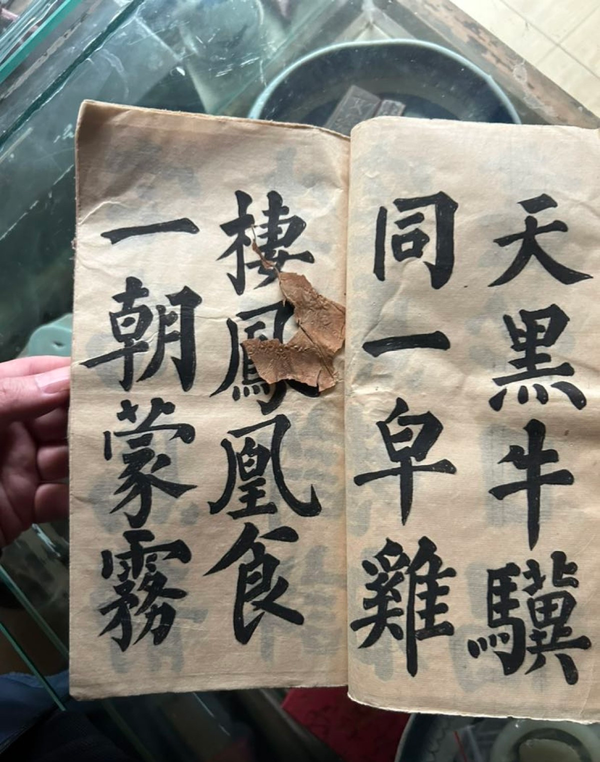 天黑牛驥
同一皁雞
棲鳳凰食
一朝蒙霧